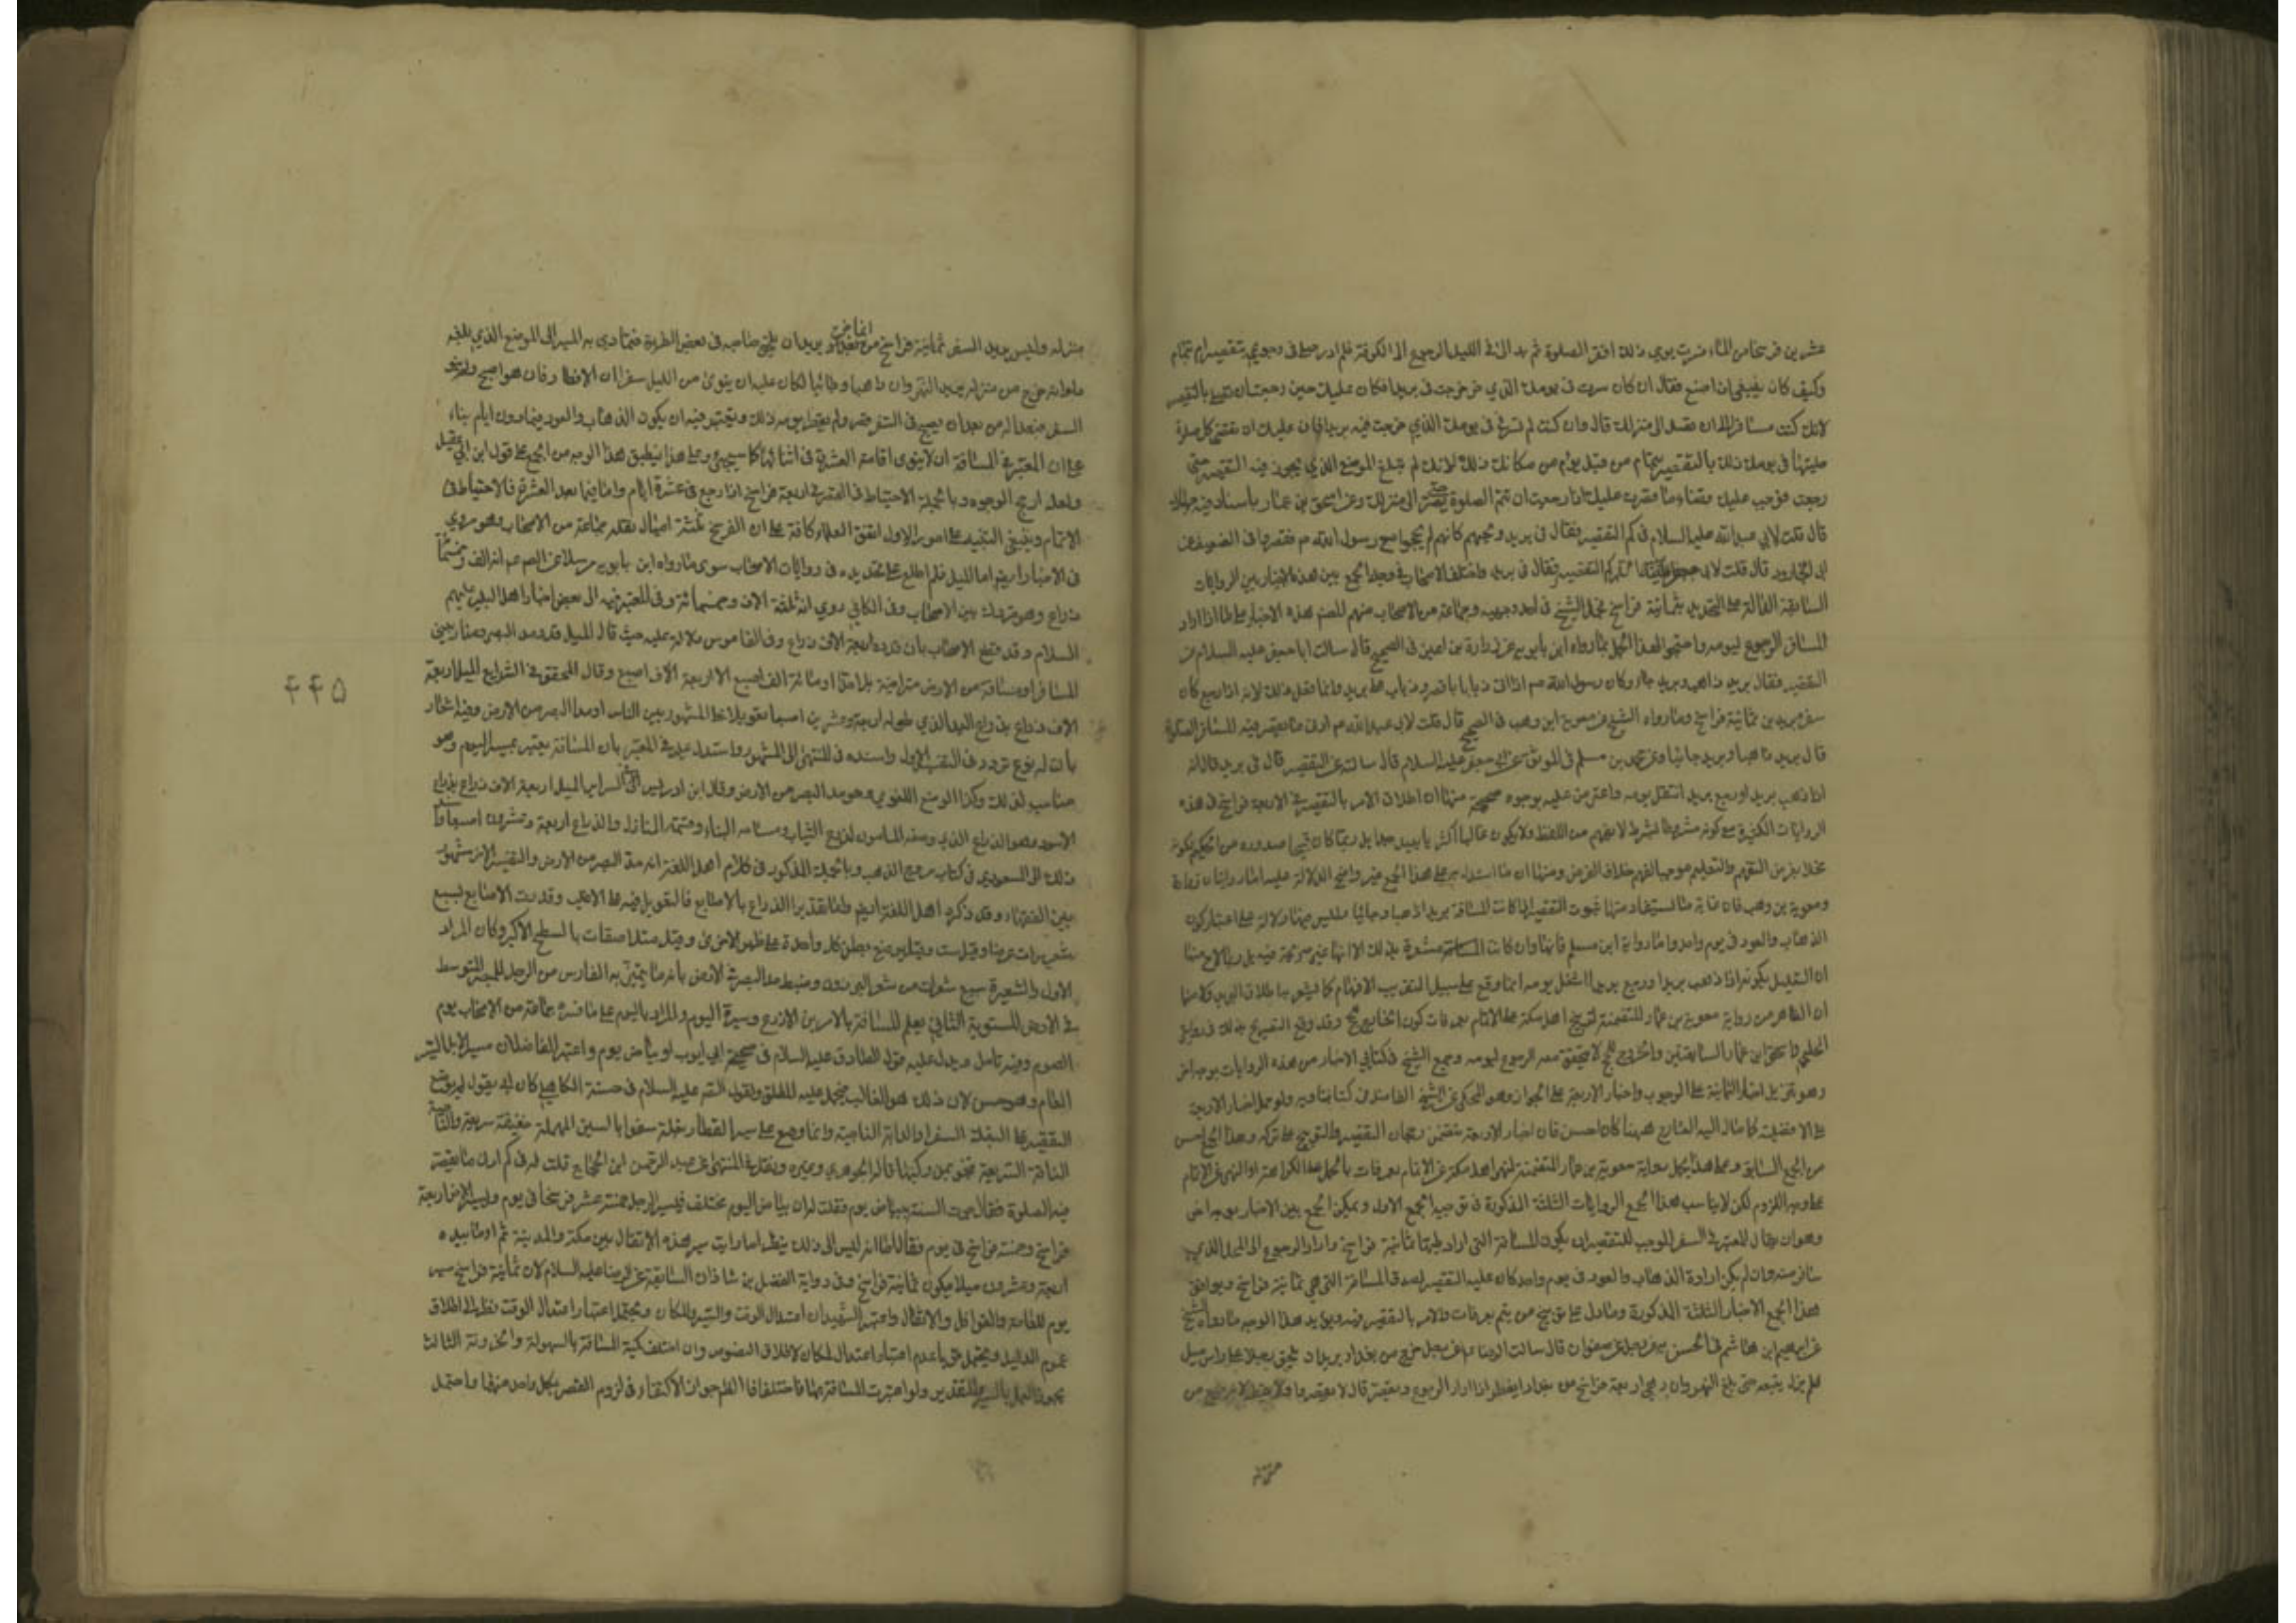 عشرين فرسخا من الماء فسرت يومي ذلك اقصر الصلوة ثم بدا لي في الليل الرجوع الى الكوفة فلم ادر اصلي في رجوعي بتقصير ام بتمام
وكيف كان ينبغي ان اصنع فقال ان كان سرت في يومك الذي خرجت فيه بريدا فكان عليك حين رجعت ان تصلي بالتقصير
لانك كنت مسافرا الى ان تصل الى منزلك قال وان كنت لم تسر في يومك الذي خرجت فيه بريدا فان عليك ان تقضي كل صلوة
صليتها في يومك ذلك بالتقصير بتمام من قبل يؤم من مكانك ذلك لانك لم تبلغ الموضع الذي يجوز فيه التقصير حتى
رجعت فوجب عليك قضاء ما قصرت وعليك اذا رجعت ان تتم الصلوة حتى تصير الى منزلك وعن اسحق بن عمار باسناد فيه جهالة
قال قلت لابي عبد الله عليه السلام في كم التقصير فقال في بريد ويحهم كانهم لم يحجوا مع رسول الله ص فقصروا في الضعيف عن
ابي الجارود قال قلت لابي جعفر في كم التقصير فقال في بريد واختلف الاصحاب في وجه الجمع بين هذه الاخبار بين الروايات
السابقة الدالة على التحديد بثمانية فراسخ فحمل الشيخ في احد وجهيه وجماعة من الاصحاب منهم المصنف هذه الاخبار على ما اذا اراد
المسافر الرجوع ليومه واحتجوا لهذا الحمل بما رواه ابن بابويه عن زرارة بن اعين في الصحيح قال سالت ابا جعفر عليه السلام عن
التقصير فقال بريد ذاهب وبريد جاء وكان رسول الله ص اذا اتى ذبابا قصر وذباب على بريد وانما فعل ذلك لانه اذا رجع كان
سفره بريدين ثمانية فراسخ وما رواه الشيخ عن معوية ابن وهب في الصحيح قال قلت لابي عبد الله ع ادنى ما يقصر فيه المسافر الصلوة
قال بريد ذاهبا وبريد جائيا وعن محمد بن مسلم في الموثق عن ابي جعفر عليه السلام قال سالته عن التقصير قال في بريد قال انه
اذا ذهب بريدا ورجع بريدا شغل يومه واعترض عليه بوجوه منها ان اطلاق الامر بالتقصير في الاربعة فراسخ في هذه
الروايات الكثيرة مع كونه مشروطا بشرط لا يفهم من اللفظ ولا يكون غالبا اكثريا بعيد جدا بل ربما كان قبيحا صدوره من الحكيم لكونه
ومعوية بن وهب فان غاية ما يستفاد منها ثبوت التقصير اذا كانت المسافة بريدا ذاهبا وجائيا وليس فيها دلالة على اعتبار كون
الذهاب والعود في يوم واحد واما رواية ابن مسلم فانها وان كانت مشعرة بذلك الا انها غير صريحة فيه بل ربما لاح منها
ان التعليل بكونه اذا ذهب بريدا ورجع بريدا شغل يومه انما وقع على سبيل التقريب الى الافهام كما يشعر به اطلاق
ان الظاهر من رواية معوية بن عمار المتضمنة لتوبيخ اهل مكة على الاتمام بعرفات كون الخارج للحج وقد وقع التصريح بذلك في رواية
الحلبي واسحق ابن عمار السابقتين والخروج للحج لا يتحقق معه الرجوع ليومه وجمع الشيخ في كتابي الاخبار بين هذه الروايات بوجه اخر
وهو تنزيل اخبار الثمانية على الوجوب واخبار الاربعة على الجواز وهو المحكي عن الشيخ ولو حمل اخبار الاربعة
على الافضلية كما مال اليه الشارح ههنا كان احسن فان اخبار الاربعة تتضمن رجحان التقصير والتوبيخ على تركه وهذا الجمع احسن
من الجمع السابق وعلى هذا يحمل رواية معوية بن عمار المتضمنة لنهي اهل مكة عن الاتمام بعرفات بالحمل على الكراهة او النهي عن الاتمام
على وجه اللزوم لكن لا يناسب هذا الجمع الروايات الثلثة المذكورة في توجيه الجمع الاول ويمكن الجمع بين الاخبار بوجه اخر
وهو ان يقال المعتبر في السفر الموجب للتقصير ان يكون المسافة التي اراد طيها ثمانية فراسخ واراد الرجوع الى المحل الذي
سافر منه وان لم يكن ارادة الذهاب والعود في يوم واحد كان عليه التقصير لصدق المسافة التي هي ثمانية فراسخ ويوافق
هذا الجمع الاخبار الثلثة المذكورة وما دل على توبيخ من يتم بعرفات والامر بالتقصير فيه ويؤيد هذا الوجه ما رواه الشيخ
عن ابرهيم ابن هاشم في الحسن عن رجل عن صفوان قال سالت الرضا ع عن رجل خرج من بغداد يريد ان يلحق رجلا على راس ميل
فلم يزل يتبعه حتى بلغ النهروان وهي اربعة فراسخ من بغداد ايفطر اذا اراد الرجوع ويقصر قال لا يقصر ولا يفطر لانه خرج من
منزله
منزله وليس يريد السفر ثمانية فراسخ انما خرج يريد ان يلحق صاحبه في بعض الطريق فتمادى به السير الى الموضع الذي بلغه
ولو انه خرج من منزله يريد النهروان ذاهبا وجائيا لكان عليه ان ينوي من الليل سفرا والافطار فان هو اصبح ولم ينو
السفر فبدا له من بعد ان اصبح في السفر قصر ولم يفطر يومه ذلك ويعتبر فيه ان يكون الذهاب والعود فيما دون ايام بناء
على ان المعتبر في المسافة ان لا ينوي اقامة العشرة في اثنائها كما سيجيء وعلى هذا ينطبق هذا الوجه من الجمع على قول ابن ابي عقيل
ولعله ارجح الوجوه وبالجملة الاحتياط في القصر في اربعة فراسخ اذا رجع في عشرة ايام واما فيما بعد العشرة فالاحتياط في
الاتمام وينبغي التنبيه على امور الاول اتفق العلماء كافة على ان الفرسخ ثلثة اميال نقله جماعة من الاصحاب وهو مروي
في الاخبار ايضا اما الميل فلم اطلع على تحديده في روايات الاصحاب سوى ما رواه ابن بابويه مرسلا عن الصادق ع انه الف وخمسمائة
ذراع وهو متروك بين الاصحاب وفي الكافي روي انه ثلثة الاف وخمسمائة وفي المعتبر نسبه الى بعض اخبار اهل البيت عليهم
السلام وقد قطع الاصحاب بان قدره اربعة الاف ذراع وفي القاموس دلالة عليه حيث قال الميل قدر مد البصر ومنار يبنى
للمسافر او مسافة من الارض متراخية بلا حد او مائة الف اصبع الا اربعة الاف اصبع وقال المحقق في الشرايع الميل اربعة
الاف ذراع بذراع اليد الذي طوله اربعة وعشرون اصبعا تعويلا على المشهور بين الناس او مد البصر من الارض وفيه اشعار
بان له نوع تردد في التفسير الاول واسنده في المنتهى الى المشهور واستدل عليه في المعتبر بان المسافة يعتبر بمسير اليوم وهو
مناسب لذلك وكذا الوضع اللغوي وهو مد البصر من الارض وقال ابن ادريس في السراير الميل اربعة الاف ذراع بذراع
الاسود وهو الذراع الذي وضعه المامون لذرع الثياب ومساحة البناء وقسمة المنازل والذراع اربعة وعشرون اصبعا
ذلك الى المسعودي في كتاب مروج الذهب وبالجملة المذكور في كلام اهل اللغة انه مد البصر من الارض والتفسير الاخر مشهور
بين الفقهاء وقد ذكره اهل اللغة ايضا واما تقدير الذراع بالاصابع فالتعويل فيه على الاغلب وقدرت الاصابع بسبع
شعيرات عرضا وقيل ست وقيل يوضع بطن كل واحدة على ظهر الاخرى وقيل متلاصقات بالسطح الاكبر وكان المراد
الاول والشعيرة سبع شعرات من شعر البرذون وضبط مد البصر في الارض بآخر ما يتميز به الفارس من الراجل للبصر المتوسط
في الارض المستوية الثاني يعلم المسافة بالامرين الاذرع ومسيرة اليوم والمراد باليوم على ما فسره جماعة من الاصحاب يوم
الصوم وفيه تامل ويدل عليه قول الصادق عليه السلام في صحيحة ابي ايوب او بياض يوم واعتبر الفاضلان مسير الابل السير
العام وهو حسن لان ذلك هو الغالب فيحمل عليه المطلق ولقول الصادق عليه السلام في حسنة الكاهلي كان ابي يقول لم يوضع
التقصير على البغلة السفواء والدابة الناجية وانما وضع على سير القطار وبغلة سفوا بالسين المهملة خفيفة سريعة والناجية
الناقة السريعة تنجو بمن ركبها قاله الجوهري وغيره ونقل في المنتهى عن عبد الرحمن ابن الحجاج قلت له في كم ادنى ما يقصر
فيه الصلوة فقال جرت السنة ببياض يوم فقلت له ان بياض اليوم مختلف فيسير الرجل خمسة عشر فرسخا في يوم ويسير الاخر اربعة
فراسخ وخمسة فراسخ في يوم فقال اما انه ليس الى ذلك ينظر اما رايت سير هذه الاثقال بين مكة والمدينة ثم اوما بيده
اربعة وعشرون ميلا يكون ثمانية فراسخ وفي رواية الفضل بن شاذان السابقة عن الرضا عليه السلام لان ثمانية فراسخ مسير
يوم للعامة والقوافل والاثقال واعتبر الشهيدان اعتدال الوقت والسير والمكان ويحتمل اعتبار اعتدال الوقت نظرا الى اطلاق
عموم الدليل ويحتمل قويا عدم اعتبار اعتدال المكان لاطلاق النصوص وان اختلف كمية المسافة بالسهولة والحزونة الثالث
يجوز العمل بالسير والتقدير ولو اعتبرت المسافة بهما فاختلفا فالظاهر جواز الاكتفاء في لزوم القصر بكل واحد منهما واحتمل
۴۴۵